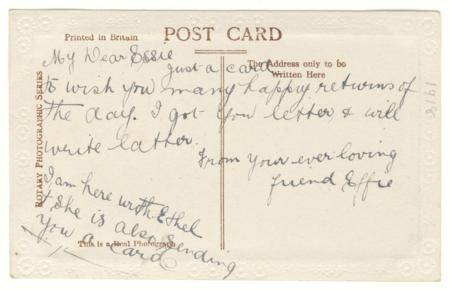 Printed in Britain
POST CARD
The Address only to be
Written Here
ROTARY PHOTOGRAPHIC SERIES
My Dear Essie
just a card
to wish you many happy returns of
the day. I got you letter & will
write lather.
From your ever loving
friend Effie
I am here with Ethel
& she is also sending
you a card
This is a Real Photograph
1918